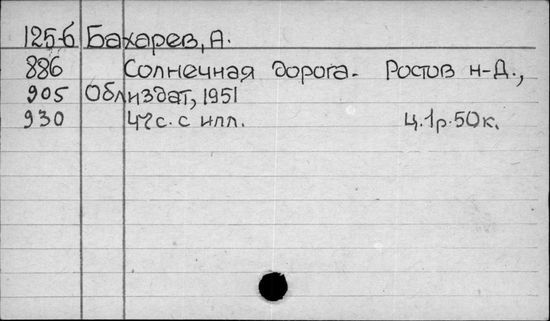 125-б Бахарев, А.
886 Солнечная дорога. Ростов н-Д.,
905 Облиздат, 1951
930 47с. с илл. ц. 1р. 50к.